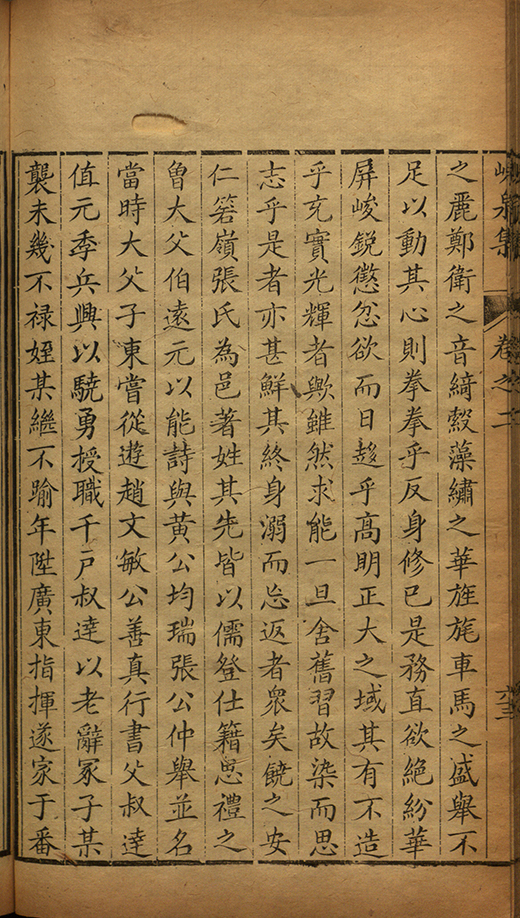 峴泉集 卷之二 六三
之麗鄭衛之音綺縠藻繡之華旌旄車馬之盛舉不
足以動其心則拳拳乎反身修已是務直欲絶紛華
屏峻銳懲忿欲而日趍乎高明正大之域其有不造
乎充實光輝者歟雖然求能一旦舍舊習故染而思
志乎是者亦甚鮮其終身溺而忘返者衆矣饒之安
仁箬嶺張氏為邑著姓其先皆以儒登仕籍思禮之
曾大父伯遠元以能詩與黃公均瑞張公仲舉並名
當時大父子東嘗從遊趙文敏公善真行書父叔達
值元季兵興以驍勇授職千戶叔達以老辭冢子某
襲未幾不禄姪某繼不踰年陞廣東指揮遂家于番